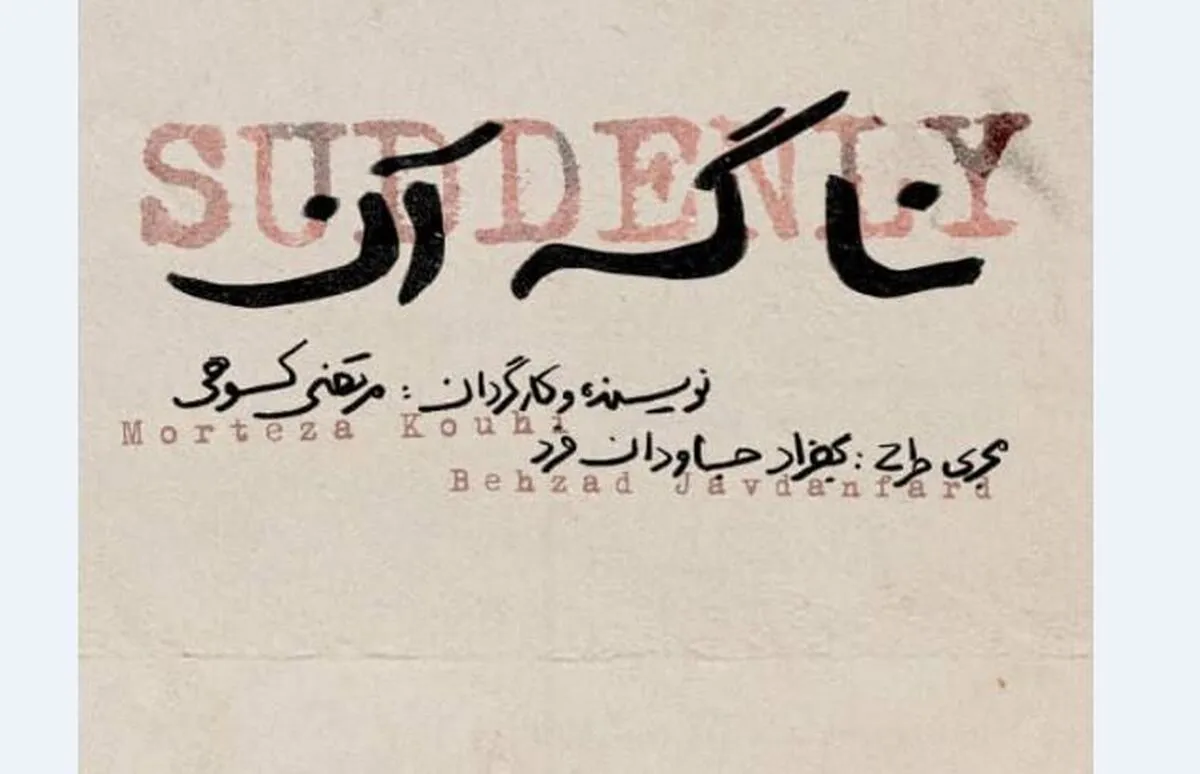 SUDDENLY
ناگه آن
نویسنده و کارگردان : مرتضی کوهی
Morteza Kouhi
مجری طرح : بهزاد جاودان فرد
Behzad Javdanfard